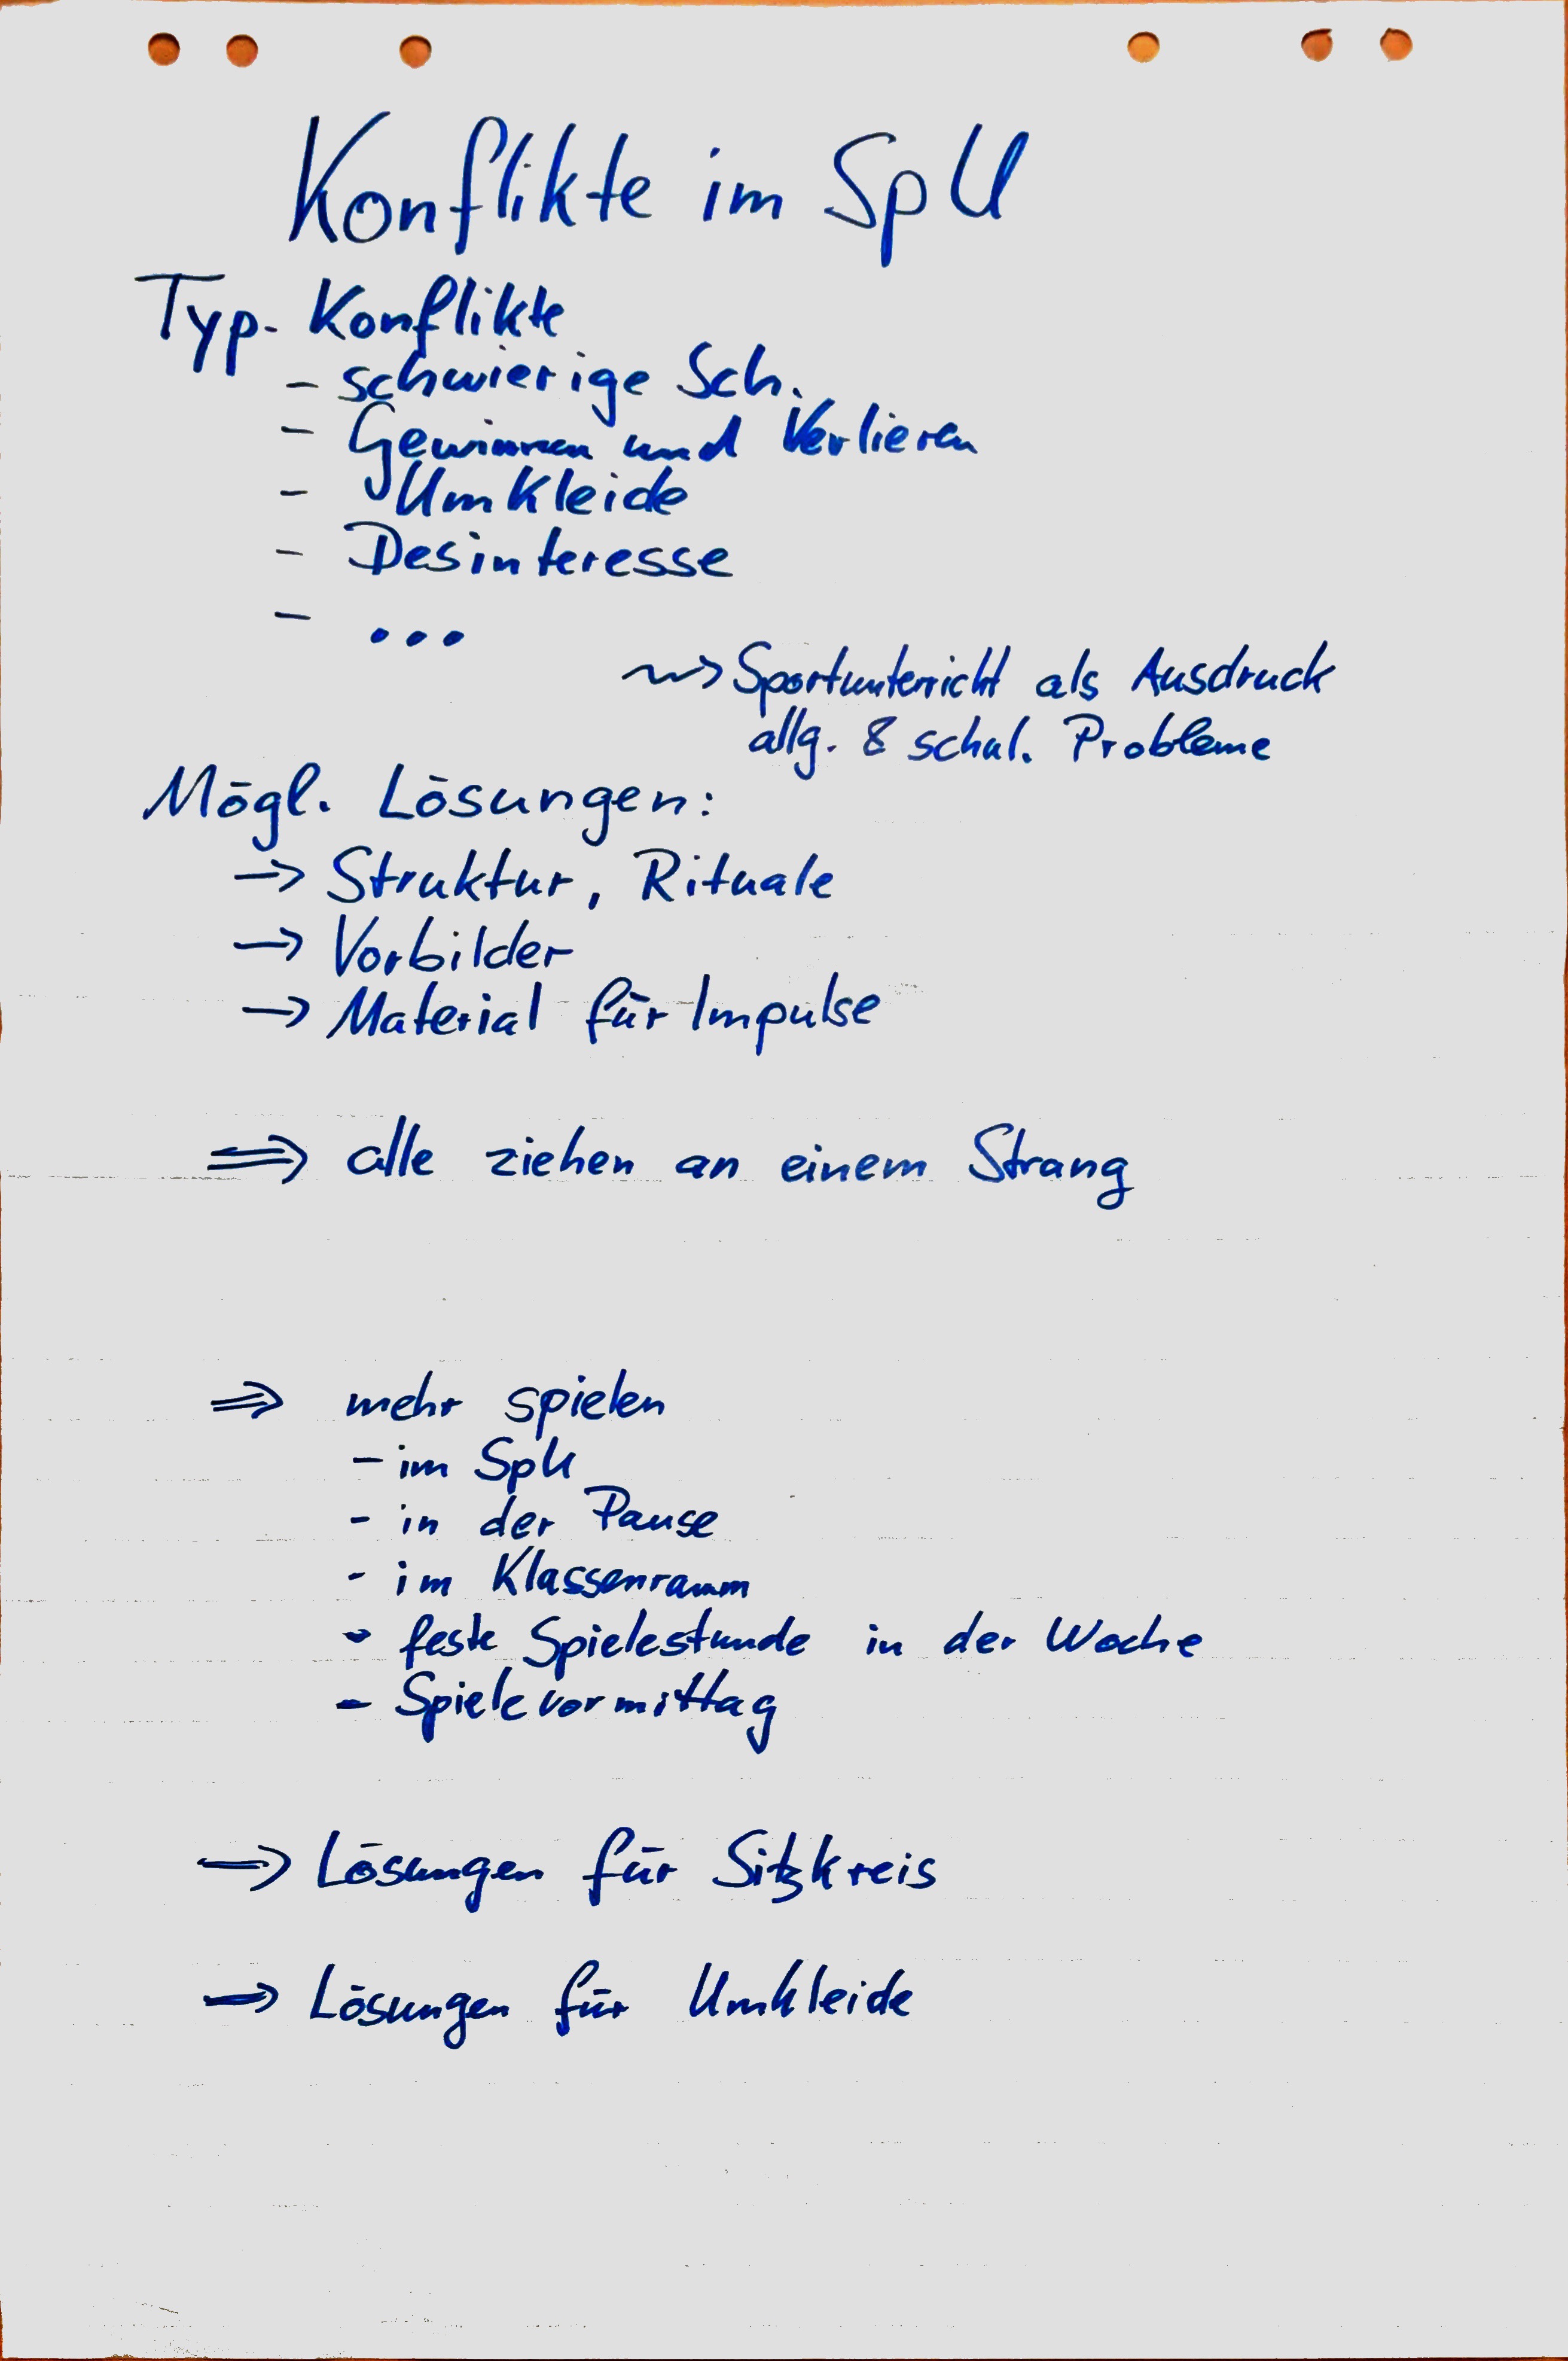 Konflikte im SpU
Typ. Konflikte
- schwierige Sch.
- Gewinnen und Verlieren
- Umkleide
- Desinteresse
- ...
~> Sportunterricht als Ausdruck
allg. & schul. Probleme
Mögl. Lösungen:
-> Struktur, Rituale
-> Vorbilder
-> Material für Impulse
=> alle ziehen an einem Strang
=> mehr spielen
- im SpU
- in der Pause
- im Klassenraum
- feste Spielestunde in der Woche
- Spielevormittag
-> Lösungen für Sitzkreis
-> Lösungen für Umkleide